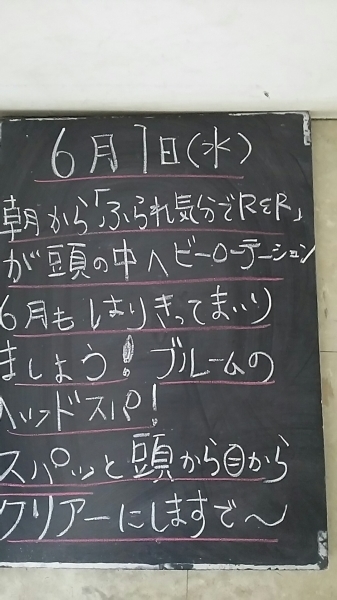 6月1日(水)
朝から「ふられ気分でR&R」
が頭の中ヘビーローテーション
6月もはりきってまいり
ましょう！ブルームの
ヘッドスパ！
スパッと頭から目から
クリアーにしますで〜